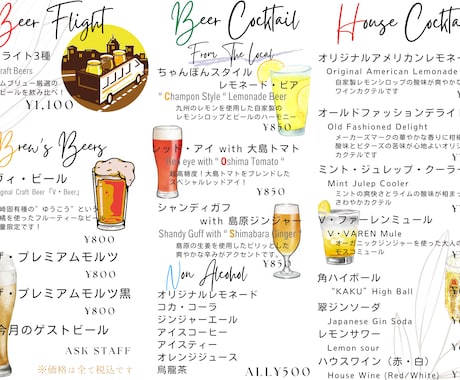 Beer Flight
ライト3種
raft Beers
ムブリュー厳選の
ビールを飲み比べ！
¥1,100
Brew's Beers
ヴィ・ビール
iginal Craft Beer「V・Beer」
崎固有種の"ゆうこう"という
橘を使ったフルーティーなビー
量限定です！
¥800
ザ・プレミアムモルツ
¥800
ザ・プレミアムモルツ黒
¥800
今月のゲストビール
ASK STAFF
※価格は全て税込です
Beer Cocktail
From The Local
ちゃんぽんスタイル
レモネード・ビア
"Champon Style" Lemonade Beer
九州のレモンを使用した自家製の
レモンシロップとビールのハーモニー
¥850
レッド・アイ with 大島トマト
Red eye with "Oshima Tomato"
超高糖度！大島トマトをブレンドした
スペシャルレッドアイ！
¥850
シャンディガフ
with 島原ジンジャー
Shandy Guff with "Shimabara Ginger"
島原の生姜を使用したピリッとした
爽やかな辛みがアクセントです。
¥850
Non Alcohol
オリジナルレモネード
コカ・コーラ
ジンジャーエール
アイスコーヒー
アイスティー
オレンジジュース
烏龍茶
ALLY500
House Cockta
オリジナルアメリカンレモネー
Original American Lemonade
自家製レモンシロップの酸味が爽やかな
ワインカクテルです
オールドファッションデライト
Old Fashioned Delight
メーカーズマークの華やかな香りに柑橘
酸味とビターズの苦味が心地よいオリジ
カクテルです
ミント・ジュレップ・クーラー
Mint Julep Cooler
ミントの爽快さとライムの酸味が相まっ
さわやかカクテル
V・ファーレンミュール
V・VAREN Mule
オーガニックジンジャーを使った大人の
モスコミュール
角ハイボール
"KAKU" High Ball
翠ジンソーダ
Japanese Gin Soda
レモンサワー
Lemon sour
ハウスワイン（赤・白）
House Wine (Red/White)